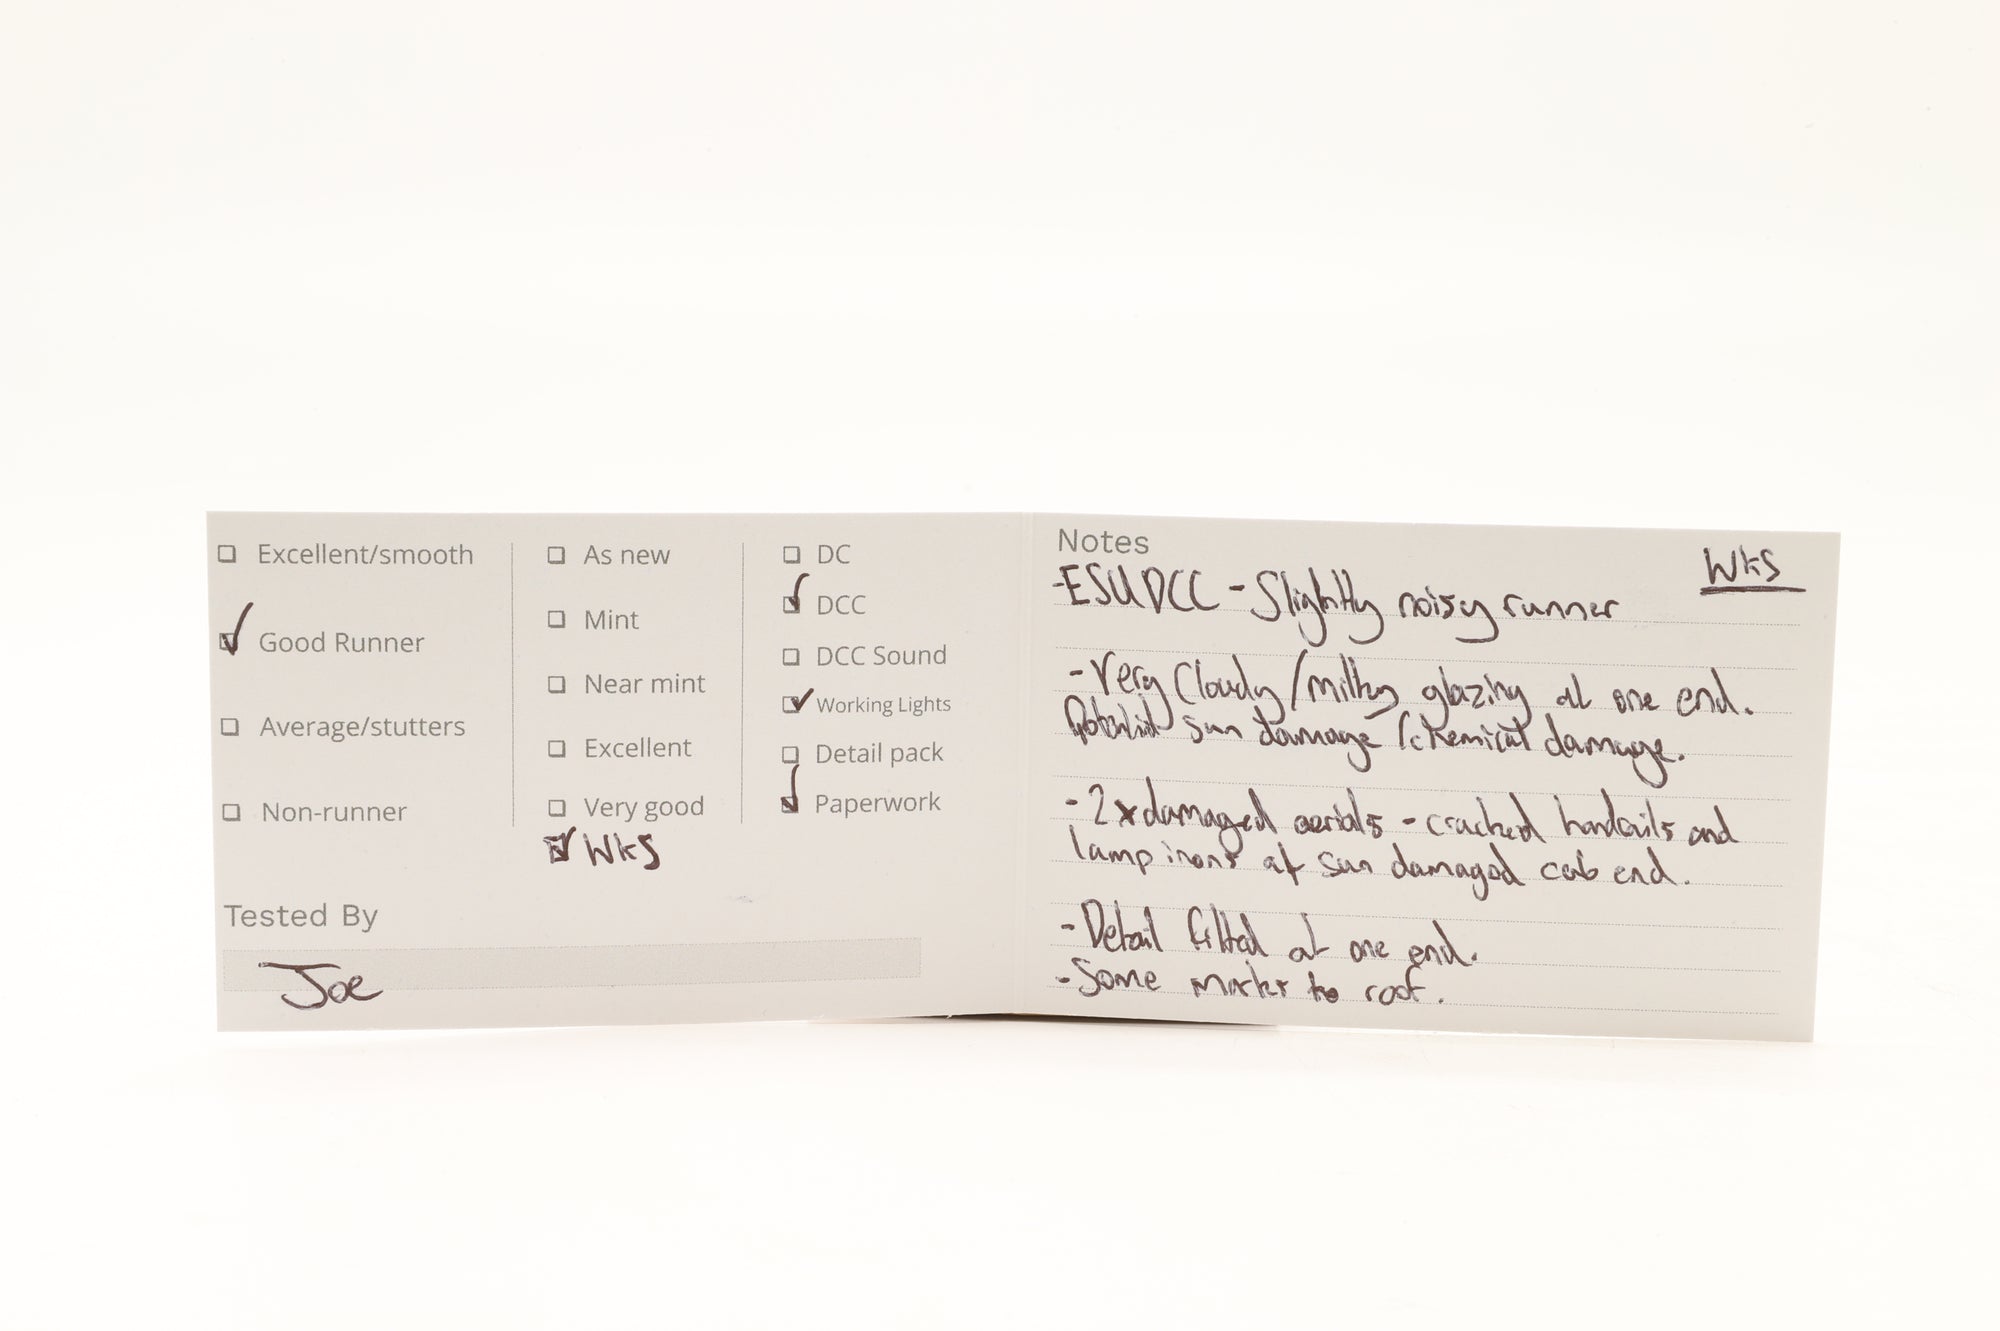 Excellent/smooth
Good Runner
Average/stutters
Non-runner
As new
Mint
Near mint
Excellent
Very good
WKS
DC
DCC
DCC Sound
Working Lights
Detail pack
Paperwork
Tested By
Joe
Notes
WKS
-ESU DCC - Slightly noisy runner
- Very Cloudy/milky glazing at one end.
Potential sun damage /chemical damage.
- 2x damaged aerials - cracked handrails and
lamp irons at sun damaged cab end.
- Detail fitted at one end.
- Some marks to roof.